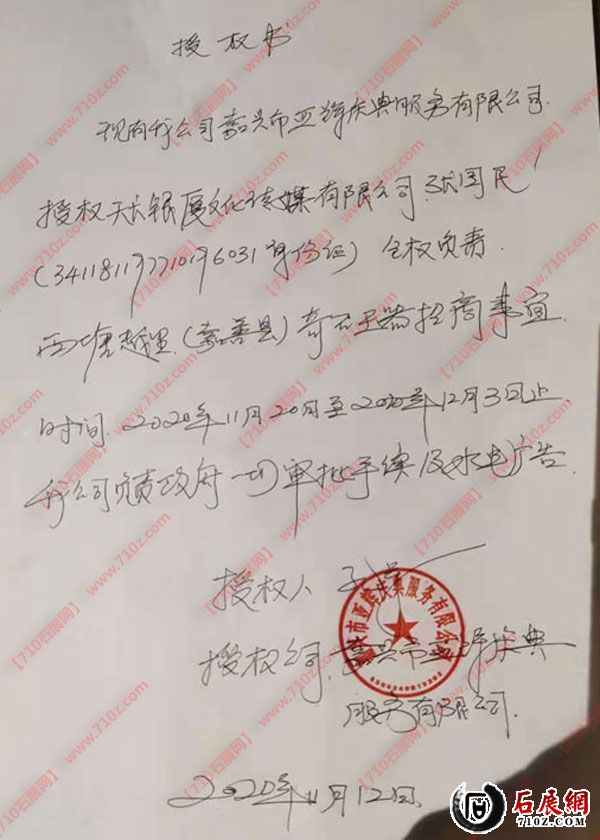 授权书
现有我公司嘉兴市亚辉庆典服务有限公司.
授权天长银厦文化传媒有限公司.张国民
(341181197710196031身份证)全权负责.
西塘越里.(嘉善县)奇石玉器招商事宜
时间.2020年11月20日至2020年12月3日止
我公司负责政府一切审批手续及水电广告.
授权人
授权公司.嘉兴市亚辉庆典
服务有限公司.
2020年11月12日.
嘉兴市亚辉庆典服务有限公司
石展網
710Z.COM
【710石展网】www.710z.com